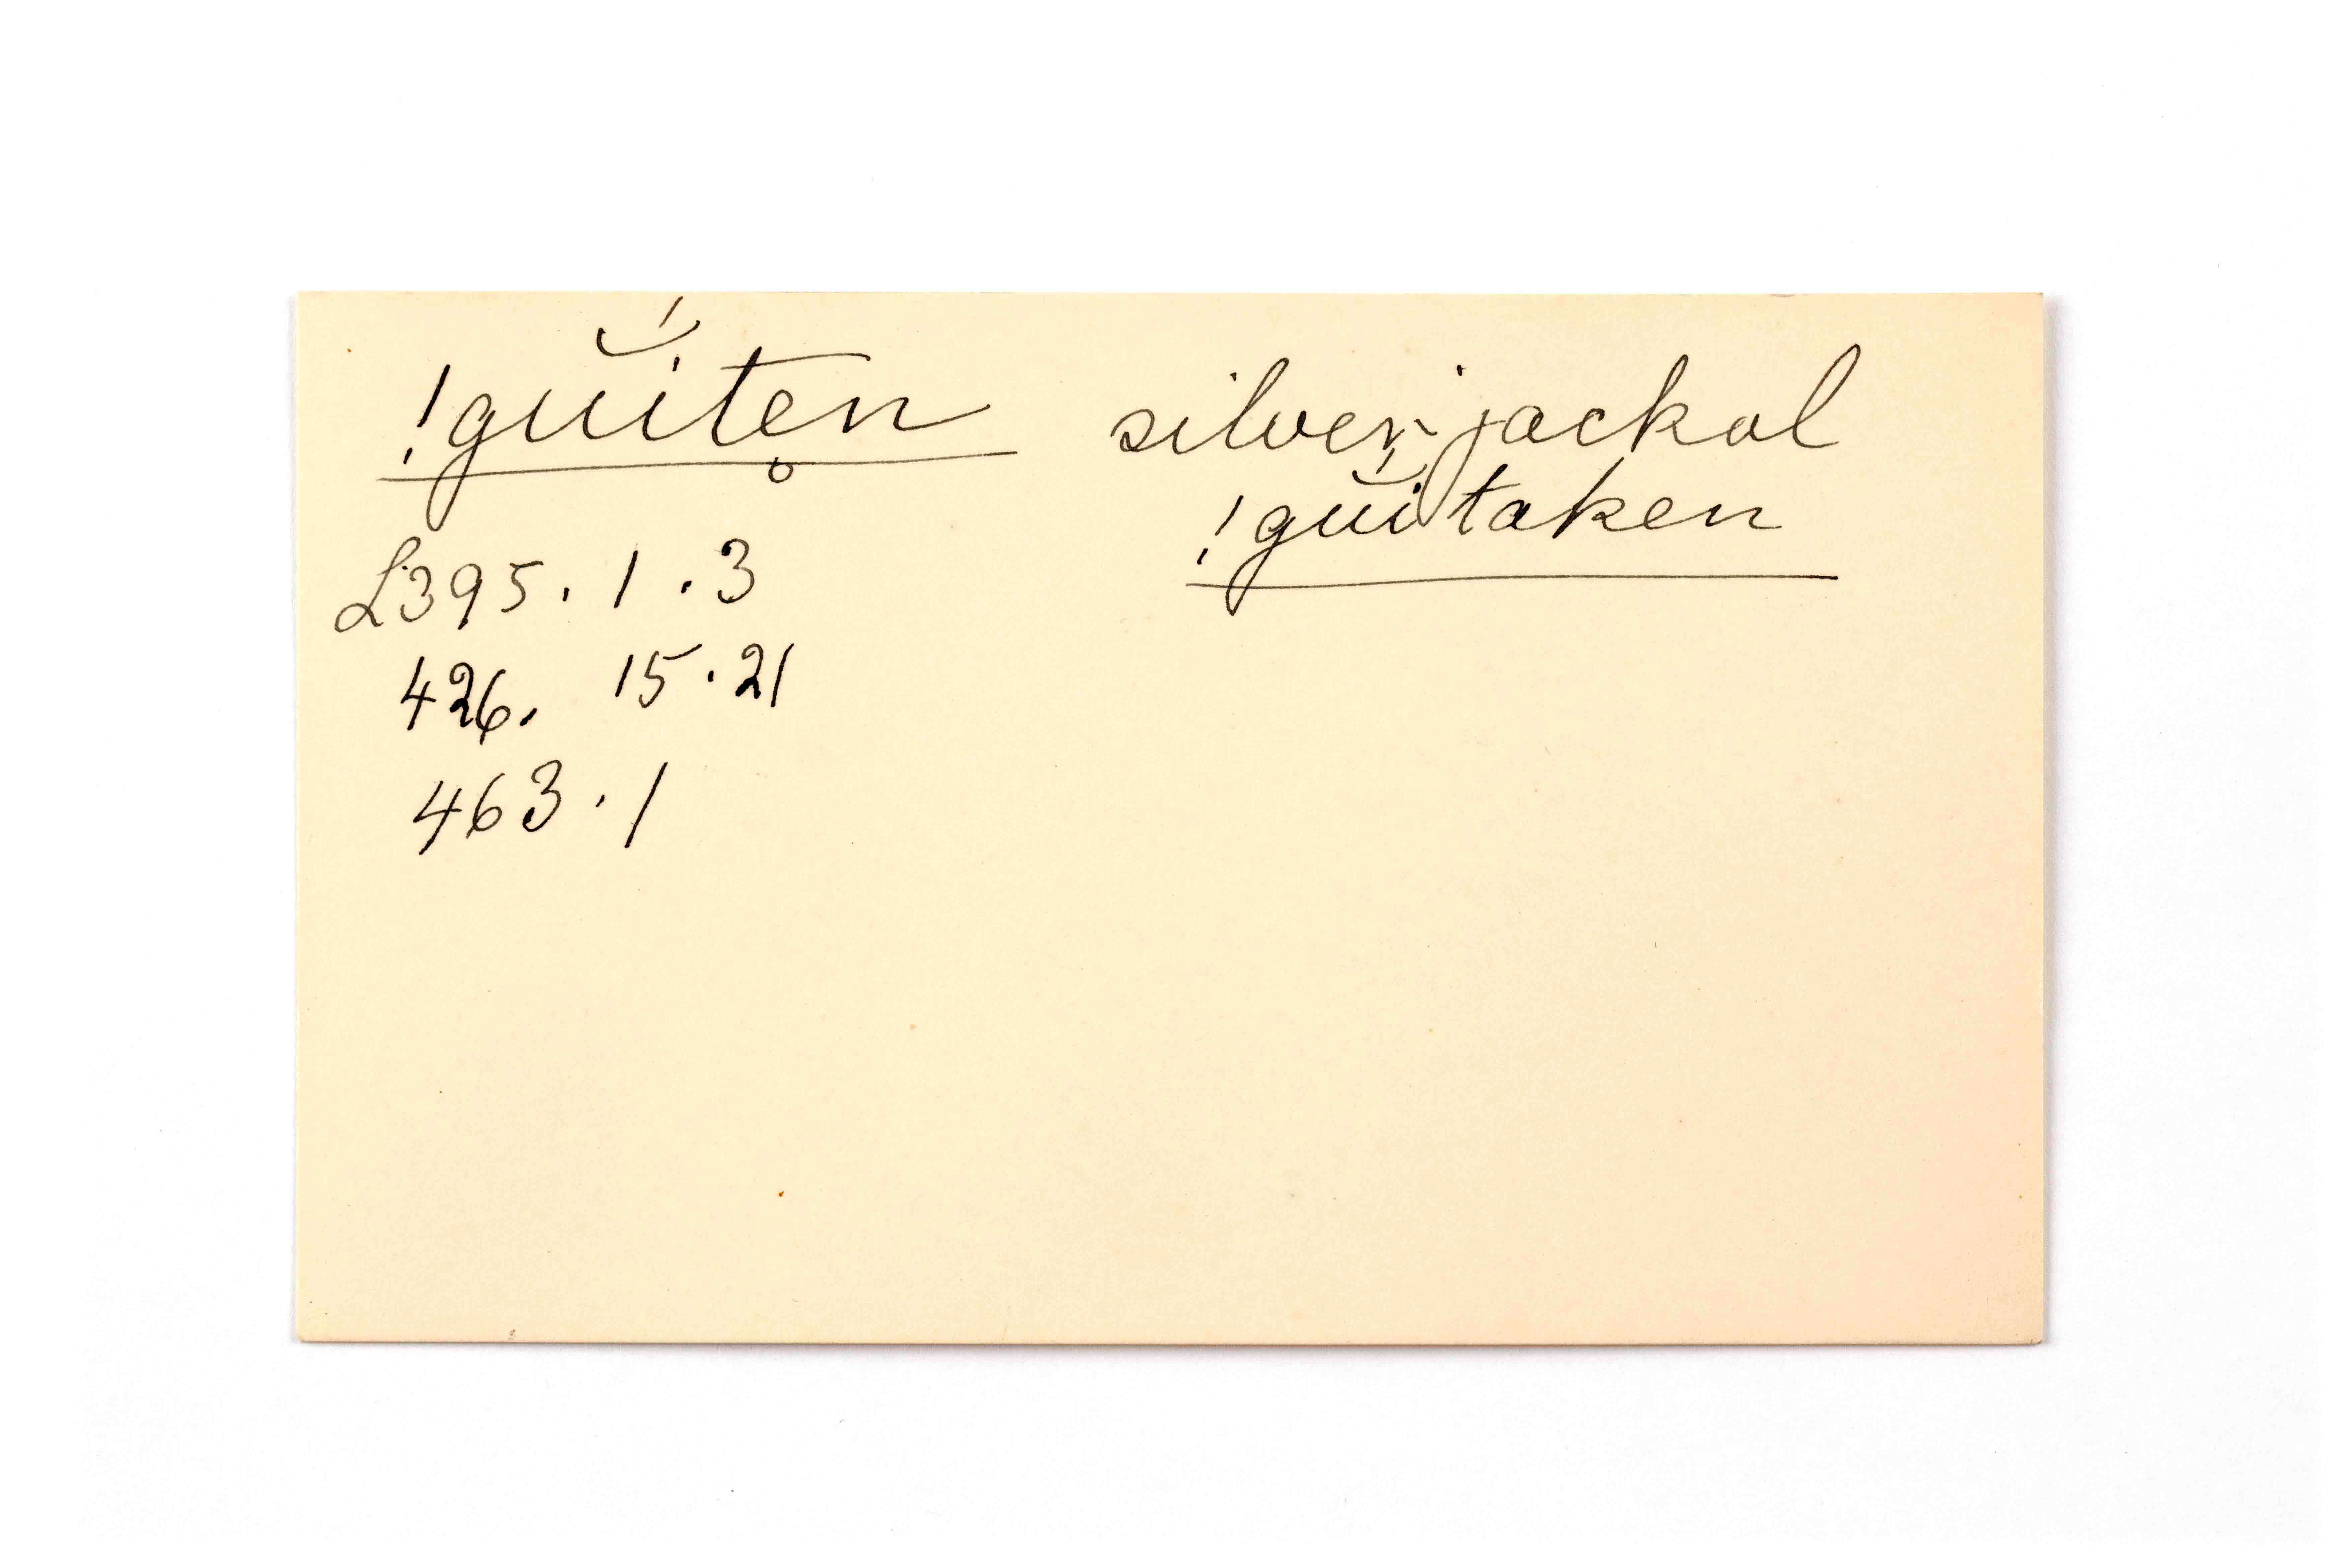 !gŭ́itẹn silver-jackal
!gŭ́itaken
L395. 1.3
426. 15.21
463.1